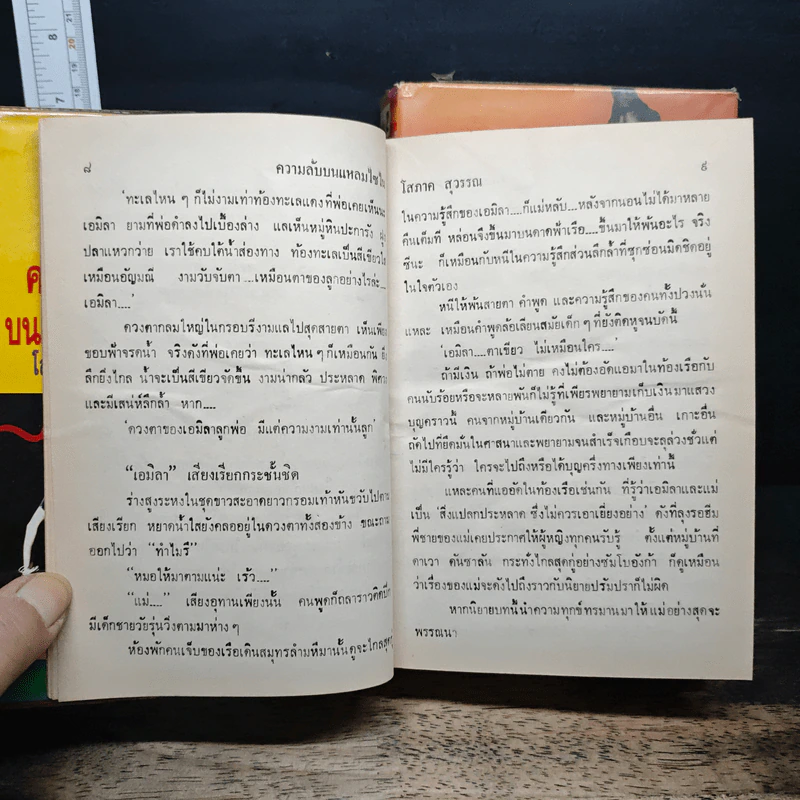 ๘
ความลับบนแหลมไซไน
'ทะเลไหน ๆ ก็ไม่งามเท่าท้องทะเลแดงที่พ่อเคยเห็นนะ
เอมิลา ยามที่พ่อดำลงไปเบื้องล่าง แลเห็นหมู่หินปะการัง ฝูง
ปลาแหวกว่าย เราใช้คบไต้น้ำส่องทาง ท้องทะเลเป็นสีเขียวใส
เหมือนอัญมณี งามวับจับตา ...เหมือนตาของลูกอย่างไรล่ะ...
เอมิลา....'
ดวงตากลมใหญ่ในกรอบรีงามแลไปสุดสายตา เห็นเพียง
ขอบฟ้าจรดน้ำ จริงดังที่พ่อเคยว่า ทะเลไหน ๆ ก็เหมือนกัน ยิ่ง
ลึกยิ่งไกล น้ำจะเป็นสีเขียวจัดขึ้น งามน่ากลัว ประหลาด
และมีเสน่ห์ลึกล้ำ หาก....
'ดวงตาของเอมิลาลูกพ่อ มีแต่ความงามเท่านั้นลูก'
"เอมิลา" เสียงเรียกกระชั้นชิด
ร่างสูงระหงในชุดขาวสะอาดยาวกรอมเท้าหันขวับไปตาม
เสียงเรียก หยาดน้ำใสยังคลออยู่ในดวงตาทั้งสองข้าง ขณะถาม
ออกไปว่า "ทำไมรึ"
"หมอให้มาตามแน่ะ เร้ว...."
"แม่...." เสียงอุทานเพียงนั้น คนพูดก็ถลาราวติดปีก
มีเด็กชายวัยรุ่นวิ่งตามมาห่าง ๆ
ห้องพักคนเจ็บของเรือเดินสมุทรลำมหึมานั้นดูจะไกลสุดกู่
โสภาค สุวรรณ
๙
ในความรู้สึกของเอมิลา....ก็แม่หลับ...หลังจากนอนไม่ได้มาหลาย
คืนเต็มที หล่อนจึงขึ้นมาบนดาดฟ้าเรือ....ขึ้นมาให้พ้นอะไร จริง
ซีนะ ก็เหมือนกับหนีในความรู้สึกส่วนลึกล้ำที่ซุกซ่อนมิดชิดอยู่
ในใจตัวเอง
หนีให้พ้นสายตา คำพูด และความรู้สึกของคนทั้งปวงนั่น
แหละ เหมือนคำพูดล้อเลียนสมัยเด็ก ๆ ที่ยังติดหูจนบัดนี้
'เอมิลา....ตาเขียว ไม่เหมือนใคร....'
ถ้ามีเงิน ถ้าพ่อไม่ตาย คงไม่ต้องอัดแอมาในท้องเรือกับ
คนนับร้อยหรือจะหลายพันก็ไม่รู้ที่เพียรพยายามเก็บเงินมาแสวง
บุญคราวนี้ คนจากหมู่บ้านเดียวกัน และหมู่บ้านอื่น เกาะอื่น
ถัดไปที่ยึดมั่นในศาสนาและพยายามจนสำเร็จเกือบจะลุล่วงชั่วแต่
ไม่มีใครรู้ว่า ใครจะไปถึงหรือได้บุญครึ่งทางเพียงเท่านี้
แหละคนที่แออัดในท้องเรือเช่นกัน ที่รู้ว่าเอมิลาและแม่
เป็น 'สิ่งแปลกประหลาด ซึ่งไม่ควรเอาเยี่ยงอย่าง' ดังที่ลุงรอฮีม
พี่ชายของแม่เคยประกาศให้ผู้หญิงทุกคนรับรู้ ตั้งแต่หมู่บ้านที่
ดาเวา ดันซาลัน กระทั่งไกลสุดกู่อย่างซัมโบอังก้า ก็ดูเหมือน
ว่าเรื่องของแม่จะดังไปถึงราวกับนิยายปรัมปราก็ไม่ผิด
หากนิยายบทนี้นำความทุกข์ทรมานมาให้แม่อย่างสุดจะ
พรรณนา